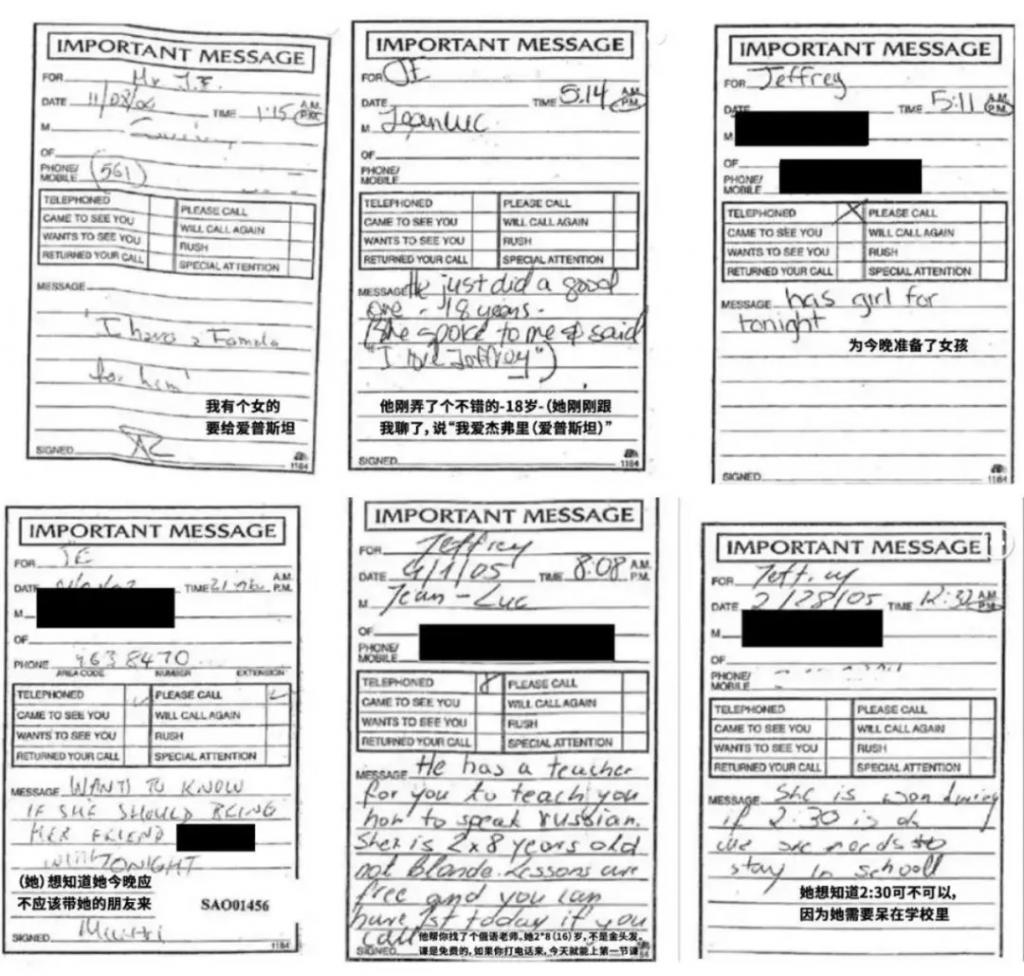 IMPORTANT MESSAGE
FOR Mr J.E.
DATE TIME 1:15 A.M. P.M.
M
OF
PHONE/ MOBILE (561)
TELEPHONED PLEASE CALL
CAME TO SEE YOU WILL CALL AGAIN
WANTS TO SEE YOU RUSH
RETURNED YOUR CALL SPECIAL ATTENTION
MESSAGE
"I have a Female
for him"
我有个女的
要给爱普斯坦
SIGNED
1184
IMPORTANT MESSAGE
FOR JE
DATE TIME 5:14 A.M. P.M.
M JeanLuc
OF
PHONE/ MOBILE
TELEPHONED PLEASE CALL
CAME TO SEE YOU WILL CALL AGAIN
WANTS TO SEE YOU RUSH
RETURNED YOUR CALL SPECIAL ATTENTION
MESSAGE He just did a good
one - 18 years -
(She spoke to me & said
"I love Jeffrey")
他刚弄了个不错的-18岁-（她刚刚跟
我聊了，说“我爱杰弗里（爱普斯坦）”
SIGNED
1184
IMPORTANT MESSAGE
FOR Jeffrey
DATE TIME 5:11 A.M. P.M.
M
OF
PHONE/ MOBILE
TELEPHONED X PLEASE CALL
CAME TO SEE YOU WILL CALL AGAIN
WANTS TO SEE YOU RUSH
RETURNED YOUR CALL SPECIAL ATTENTION
MESSAGE has girl for
tonight
为今晚准备了女孩
SIGNED
1184
IMPORTANT MESSAGE
FOR JE
DATE TIME A.M. P.M.
M
OF
PHONE 4638470
AREA CODE NUMBER EXTENSION
TELEPHONED PLEASE CALL
CAME TO SEE YOU WILL CALL AGAIN
WANTS TO SEE YOU RUSH
RETURNED YOUR CALL SPECIAL ATTENTION
MESSAGE WANTS TO KNOW
IF SHE SHOULD BRING
HER FRIEND
WITH TONIGHT
（她）想知道她今晚应
不应该带她的朋友来
SAO01456
SIGNED
1184
IMPORTANT MESSAGE
FOR Jeffrey
DATE 4/1/05 TIME 8:08 A.M. P.M.
M Jean-Luc
OF
PHONE/ MOBILE
TELEPHONED PLEASE CALL
CAME TO SEE YOU WILL CALL AGAIN
WANTS TO SEE YOU RUSH
RETURNED YOUR CALL SPECIAL ATTENTION
MESSAGE He has a teacher
for you to teach you
how to speak russian.
She is 2x8 years old
not blonde. Lessons are
free and you can
have 1st today if you
call
他帮你找了个俄语老师，她2*8（16）岁，不是金头发。
课是免费的，如果你打电话来，今天就能上第一节课
SIGNED
IMPORTANT MESSAGE
FOR Jeffrey
DATE 2/28/05 TIME 12:32 A.M. P.M.
M
OF
PHONE/ MOBILE
TELEPHONED PLEASE CALL
CAME TO SEE YOU WILL CALL AGAIN
WANTS TO SEE YOU RUSH
RETURNED YOUR CALL SPECIAL ATTENTION
MESSAGE She is wondering
if 2:30 is ok
she needs to
stay in school
她想知道2:30可不可以，
因为她需要呆在学校里
SIGNED